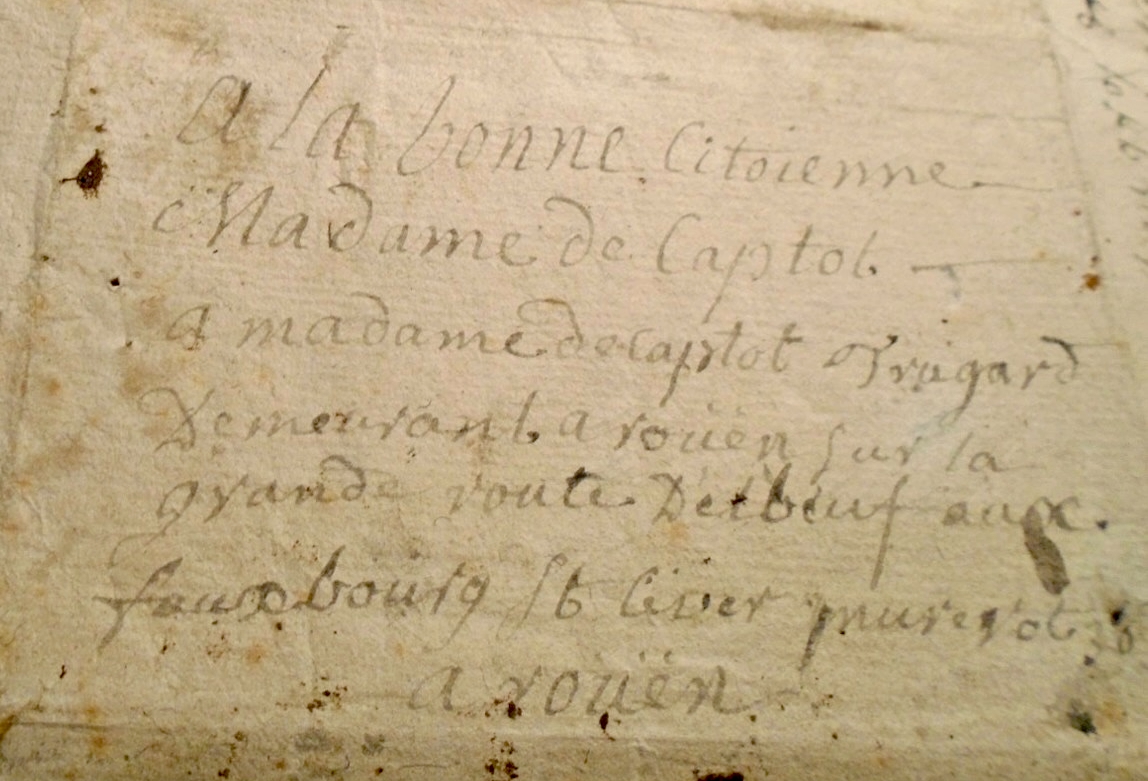 a la bonne Citoienne
Madame de Captot
a madame de captot Trugard
Demeurant a roüen sur la
grande route Delbeuf aux
fauxbourg St Cever
a roüen